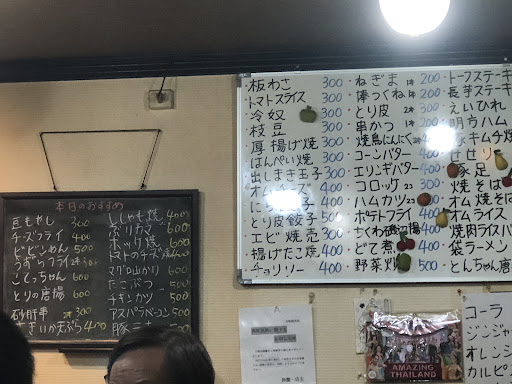 本日のおすすめ
豆もやし 300
チーズフライ 400
ビビンめん 500
うずらフライ 2本 300
とりの唐揚 500
砂肝串 2本 300
さきいか天ぷら 400
ししゃも焼 400
ぶりカマ 600
ホッケ焼 600
トマトのチーズ焼 400
マグロ山かけ 600
たこぶつ 500
チキンカツ 500
アスパラベーコン 500
板わさ 300
トマトスライス 300
冷奴
枝豆 300
厚揚げ焼 300
はんぺい焼 300
出しまき玉子 300
エビ焼売 300
揚げたこ焼 400
チョリソー 400
ねぎま 1本 200
俵つくね 1本 200
とり皮 2本 300
串かつ 2本 300
焼鳥にんにく 2本 400
コーンバター 400
エリンギバター 400
コロッケ 2コ 300
ハムカツ 2コ 400
ポテトフライ 400
ちくわ磯辺揚
どて煮 400
野菜炒 500
トーフステーキ
長芋ステーキ
えいひれ
明方ハム
キムチ焼
せせりー
豚足
焼そば
オムそば
オムライス
焼肉ライス
袋ラーメン
とんちゃん
AMAZING
THAILAND
コーラ
ジンジャ
オレンジ
カルピ